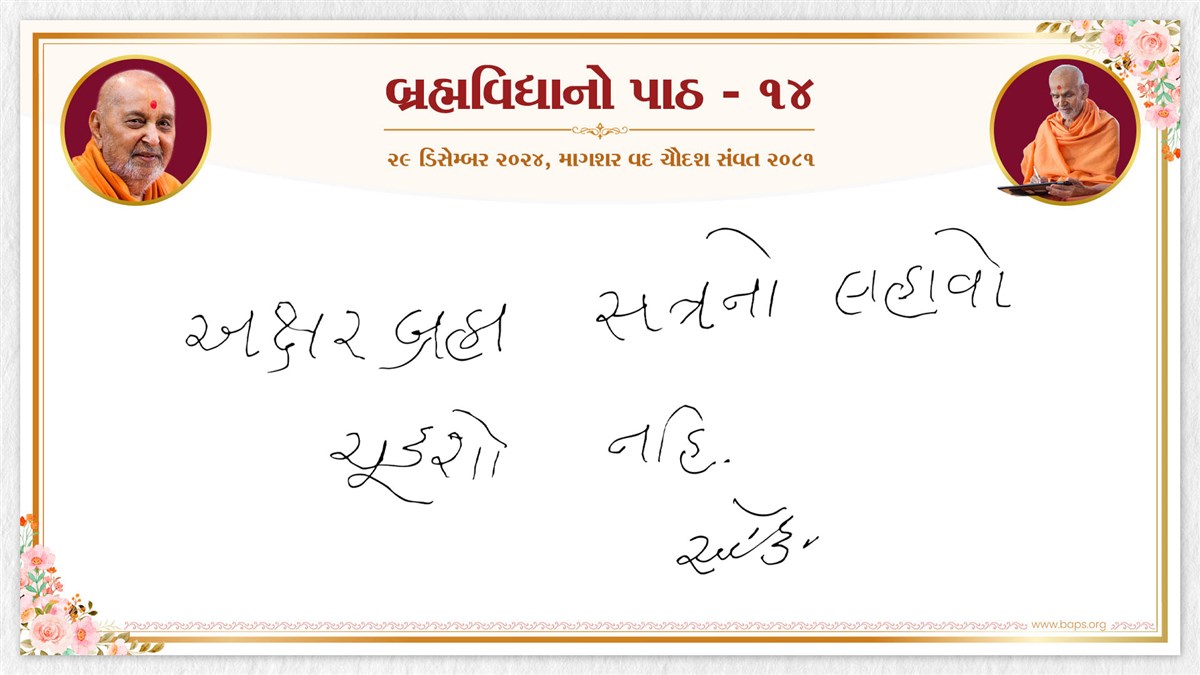 બ્રહ્મવિદ્યાનો પાઠ - ૧૪
૨૯ ડિસેમ્બર ૨૦૨૪, માગશર વદ ચૌદશ સંવત ૨૦૮૧
અક્ષરબ્રહ્મ સત્રનો લહાવો
ચૂકશો નહિ.
www.baps.org